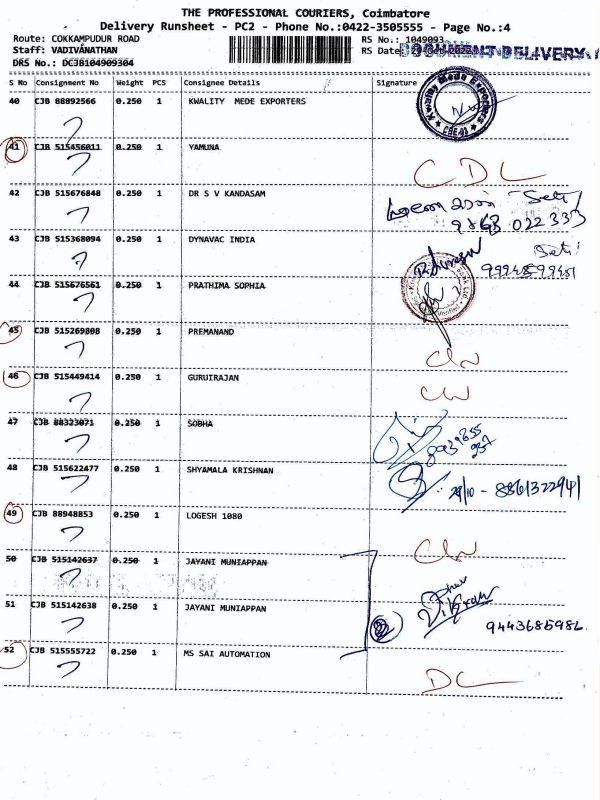 THE PROFESSIONAL COURIERS, Coimbatore
Delivery Runsheet - PC2 - Phone No.:0422-3505555 - Page No.:4
Route: COKKAMPUDUR ROAD RS No.: 1049093
Staff: VADIVANATHAN RS Date: DOCUMENT DELIVERY
DRS No.: DCJB104909304
S No Consignment No Weight PCS Consignee Details Signature
40 CJB 88892566 0.250 1 KWALITY MEDE EXPORTERS
Kwality Mede Exporters
41 CJB 515456011 0.250 1 YAMUNA
CDL
42 CJB 515676848 0.250 1 DR S V KANDASAM
022 333
43 CJB 515368094 0.250 1 DYNAVAC INDIA
44 CJB 515676561 0.250 1 PRATHIMA SOPHIA
45 CJB 515269808 0.250 1 PREMANAND
46 CJB 515449414 0.250 1 GURUIRAJAN
47 CJB 88323071 0.250 1 SOBHA
48 CJB 515622477 0.250 1 SHYAMALA KRISHNAN
29/10 - 8861322941
49 CJB 88948853 0.250 1 LOGESH 1080
50 CJB 515142637 0.250 1 JAYANI MUNIAPPAN
51 CJB 515142638 0.250 1 JAYANI MUNIAPPAN
9443685982
52 CJB 515555722 0.250 1 MS SAI AUTOMATION
DL